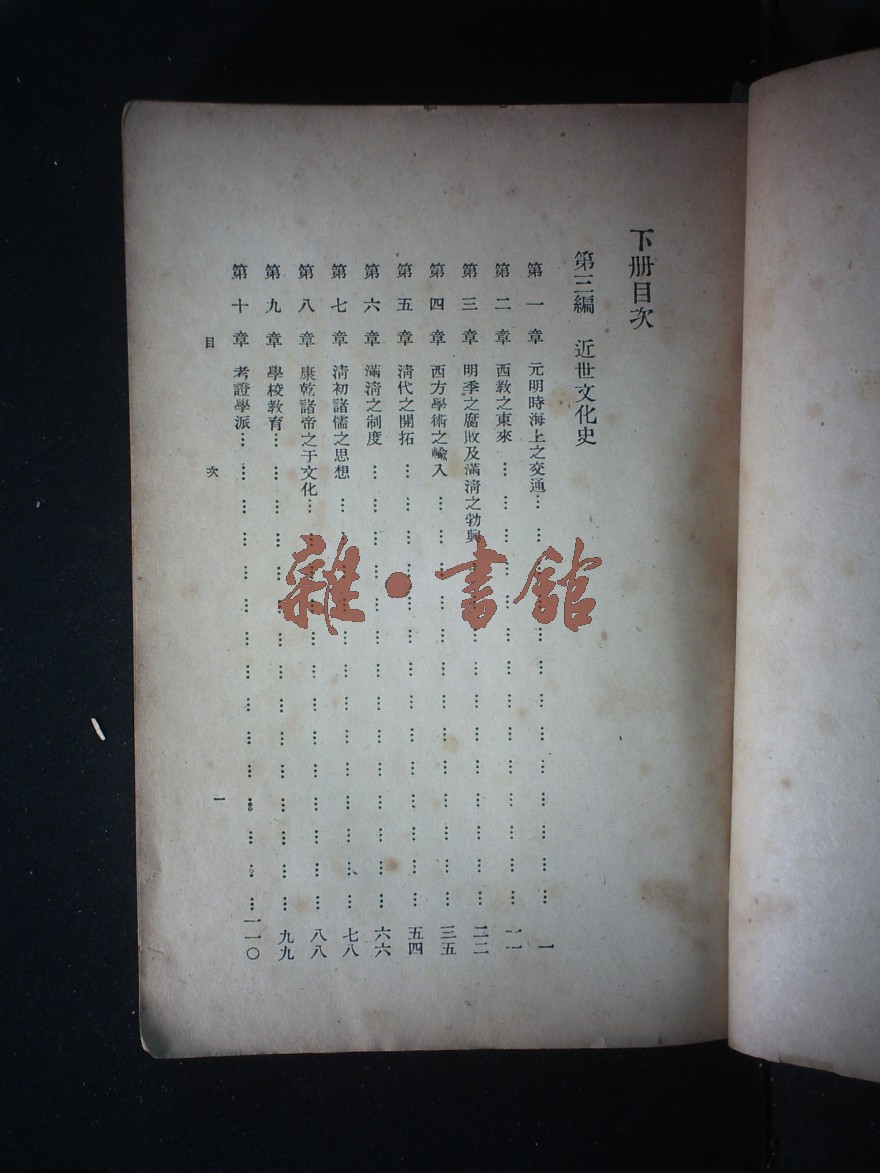 下册目次
第三編 近世文化史
第一章 元明時海上之交通……………………………………一
第二章 西教之東來……………………………………一一
第三章 明季之腐敗及滿淸之勃興……………………………………二二
第四章 西方學術之輸入……………………………………三五
第五章 淸代之開拓……………………………………五四
第六章 滿淸之制度……………………………………六六
第七章 淸初諸儒之思想……………………………………七八
第八章 康乾諸帝之于文化……………………………………八八
第九章 學校教育……………………………………九九
第十章 考證學派……………………………………一一〇
目次 一
雜·書館